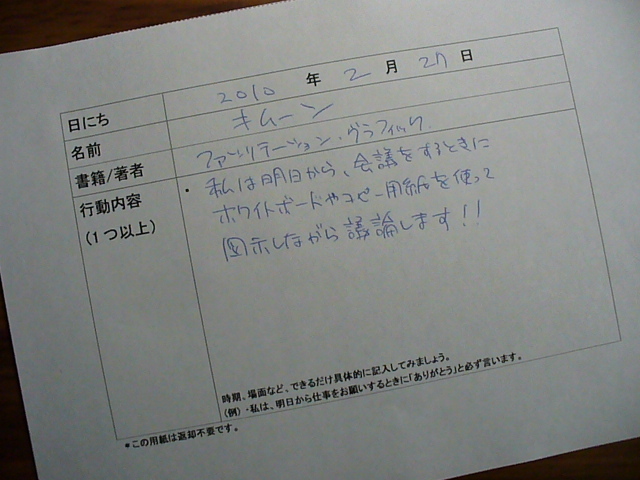 日にち 2010 年 2 月 27 日
名前 キムーン
書籍/著者 ファシリテーション・グラフィック
行動内容 ・私は明日から、会議をするときに
(1つ以上) ホワイトボードやコピー用紙を使って
図示しながら議論します!!
時期、場面など、できるだけ具体的に記入してみましょう。
(例)・私は、明日から仕事をお願いするときに「ありがとう」と必ず言います。
*この用紙は返却不要です。